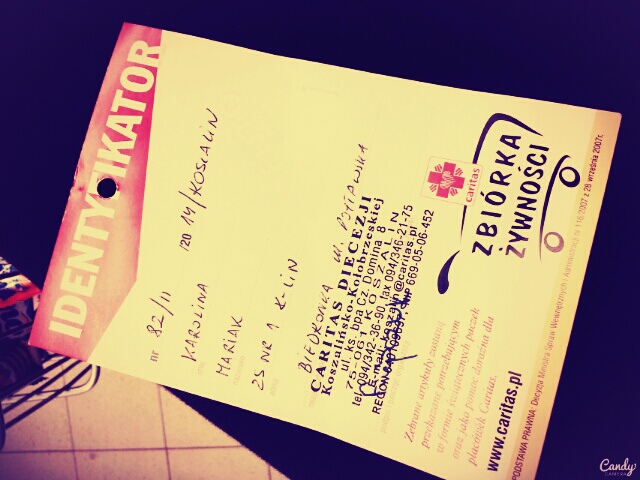 IDENTYFIKATOR
nr 82/11 120 14/KOSZALIN
KAROLINA
MARIAK
ZS NR 1 K-LIN
BIEDRONKA ul.
CARITAS DIECEZJI
Koszalińsko-Kołobrzeskiej
ul. ks. bpa Cz. Domina 8
75-061 KOSZALIN
tel. 094/342-36-90, fax 094/346-21-75
caritas
ZBIÓRKA
ŻYWNOŚCI
Zebrane artykuły zostaną
przekazane potrzebującym
w formie świątecznych paczek
oraz jako pomoc doraźna dla
placówek Caritas.
www.caritas.pl
PODSTAWA PRAWNA: Decyzja Ministra Spraw Wewnętrznych i Administracji nr 116/2007 z 28 września 2007r.
Candy
CAMERA